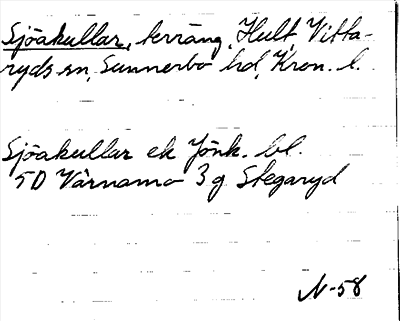 Sjöakullar, terräng, Hult, Vitta-
ryds sn, Sunnerbo hd, Kron. l.
Sjöakullar ek Jönk. bl.
5D Värnamo 3g Stegaryd
N-58